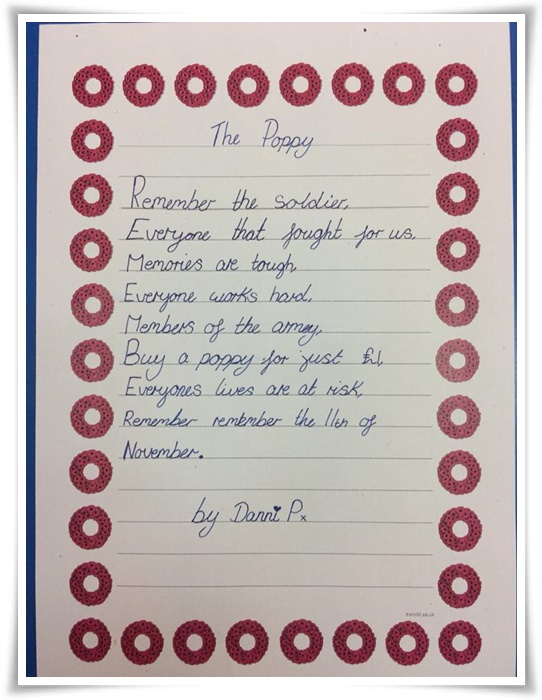 The Poppy
Remember the soldier,
Everyone that fought for us,
Memories are tough,
Everyone works hard,
Members of the armey,
Buy a poppy for just £1,
Everyones lives are at risk,
Remember remember the 11th of
November.
by Danni P x